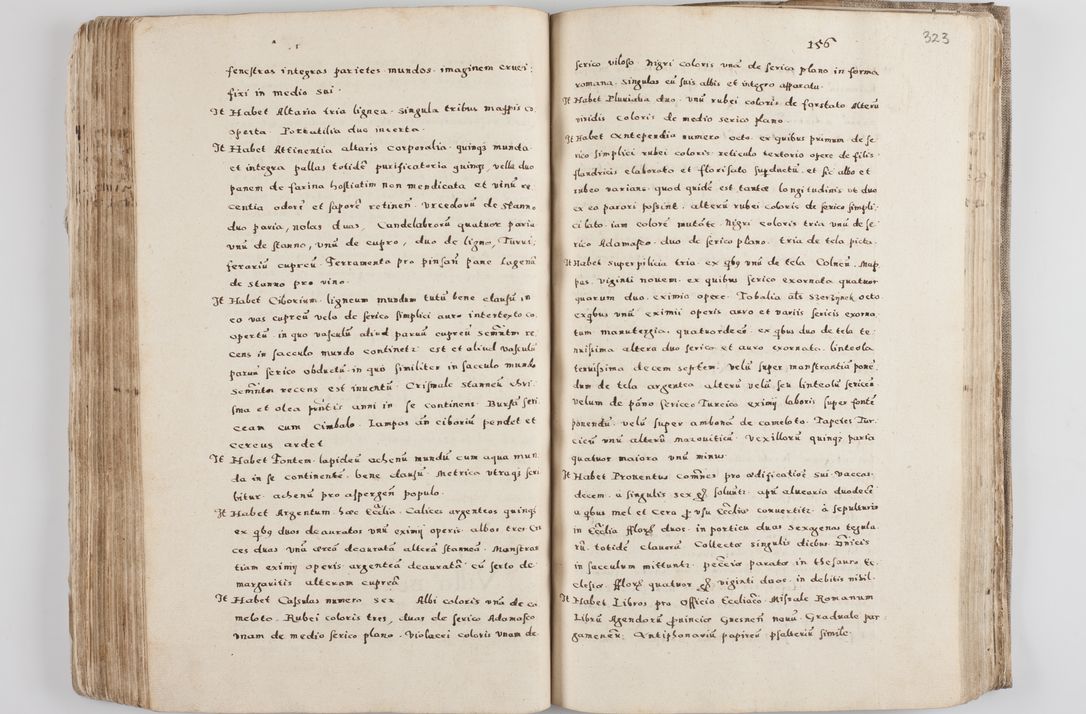 fenestras integras parietes mundos. imaginem cruci
fixi in medio sui.
It Habet Altaria tria lignea. singula tribus mappis co
operta. Portatilia duo incerta.
It Habet Attinentia altaris corporalia. quinq3 munda
et integra pallas totidē purificatoria quinq3, vella duo
panem de farina hostiatim non mendicata et vinū re
centia odorē et saporē retinen. Vrceolorū de stanno
duo paria, nolas duas, Candelabrorū quatuor paria
vnū de stanno, vnū de cupro, duo de ligno, Turri,
ferariū cupreū. Ferramenta pro pinsan pane Lagenā
de stanno pro vino.
It Habet Ciborium ligneum mundum tutū bene clausū in
eo vas cupreū velo de serico simplici auro intertexto co
opertū. in quo vasculū aliud paruū cupreū Scrmtm re
cens in sacculo mundo continetr. est et aliud vasculū
paruū serico obductū. in quo similiter in sacculo mundo
Scrmtm recens est inuentū. Crismale stanneū chri
sma et olea pntis anni in se continens. Bursā seri
ceam cum cimbalo. Lampas an ciboriū pendet et
cereus ardet
It Habet Fontem lapideū ahenū mundū cum aqua mun
da in se continentē. bene clausū Metrica vtraq3 scri
bitur ahenū pro aspergen populo.
It Habet Argentum hæc Ecclia. Calices argenteos quinq3
ex qb9 duos deauratos vnū eximij operis albos tres Cru
ces duas vnā æreā deauratā alterā stanneā. Monstran
tiam eximij operis argenteā deauratā. cū serto de
margaritis alteram cupreā
It Habet Casulas numero sex Albi coloris vnā de ca
meloto. Rubei coloris tres, duas de serico Adamasco
vnam de medio serico plano. Violacei coloris vnam de
156
323
serico viloso. Nigri coloris vnā de serico plano in forma
romana. singulas cū suis albis et integro apparatu.
It Habet Pluuialia duo. vnū rubei coloris de forstato Alterū
viridis coloris de medio serico plano.
It Habet Antependia numero octo. ex quibus primum de se
rico simplici rubei coloris. reticulo textorio opere de filis
flandricis elaborato et florisato supductū. et sic albo et
rubeo varians. quod quidē est tantæ longitudinis vt duo
ex eo parari possint. alterū rubei coloris de serico simpli
ci lato. iam colorē mutāte. Nigri coloris tria vnū de se
rico Adamasco. duo de serico plano. tria de tela picta.
It Habet superpilicia tria. ex qb9 vnū de tela Colnen. Map
pas viginti nouem. ex quibus serico exornata quatuor
quarum duo. eximio opere. Tobalia als Szerzynek octo.
ex qbus vnū eximii operis auro et variis sericis exorna
tum manutergia. quatuordecē. ex qbus duo de tela te
nuissima altera duo serico et auro exornata. linteola
tenuissima decem septem. velū super monstrantiā ponē
dum de tela argentea alterū velū seu linteolū sericeū
velum de pāno sericeo Turcico eximij laboris super fontē
ponendū. velū super ambonā de cameloto. Tapetes Tur
cicū vnū alterū mazouiticū. Vexillorū quinq3 paria
quatuor maiora vnū minus
It Habet Prouentus comnes pro ædificatioē sui. vaccas.
decem. a singulis sex g soluūt. apū aluearia duodecē
a qbus mel et cera p vsu Eccliæ conuertitr. à sepulturis
in Ecclia flor duos. in porticu duas sexagenas tegula
rū. totidē clauorū Collecta singulis diebus Dnicis
in sacculum mittuntr. pecunia parata in thesauro Ec
clesiæ flor quatuor g viginti duos. in debitis nihil.
It Habet Libros pro Officio Ecclīaco. Missale Romanum
Librū Agendorū puincia Gnesnen nouū. Graduale par
gameneū. Antiphonariū papireū psalteriū simile